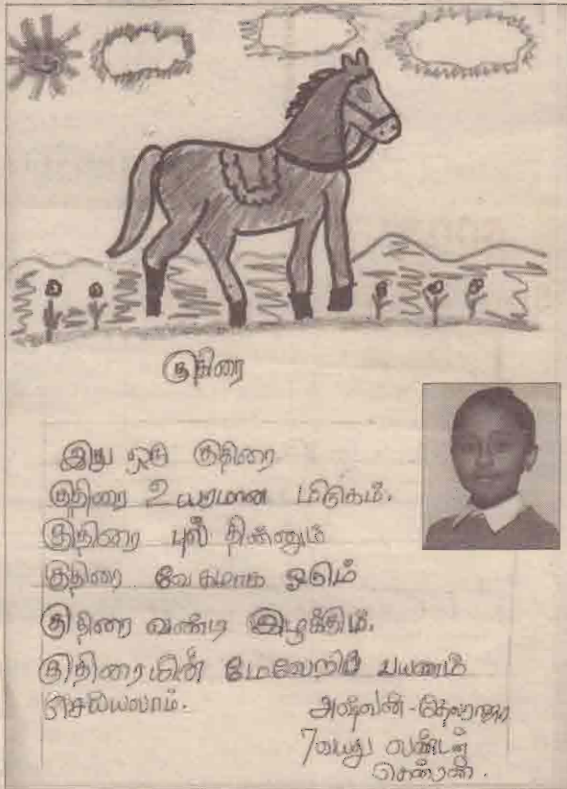 குதிரை
இது ஒரு குதிரை
குதிரை உயரமான மிடுகம்.
குதிரை புல் தின்னும்
குதிரை வேகமாக ஓடும்
குதிரை வண்டி இழுக்கும்.
குதிரையின் மேலேறிப் பயணம்
செய்யலாம்.
அஷ்வின்
7வயது லண்டன்